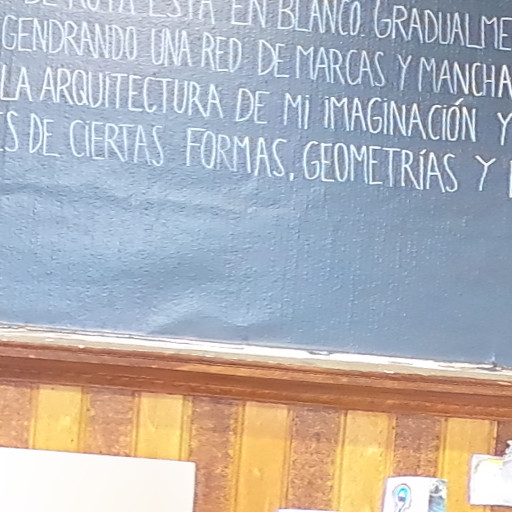 DE RUTA ESTÁ EN BLANCO. GRADUALME
GENDRANDO UNA RED DE MARCAS Y MANCHA
LA ARQUITECTURA DE Mi iMAGiNACiÓN Y
ES DE CIERTAS FORMAS, GEOMETRÍAS Y